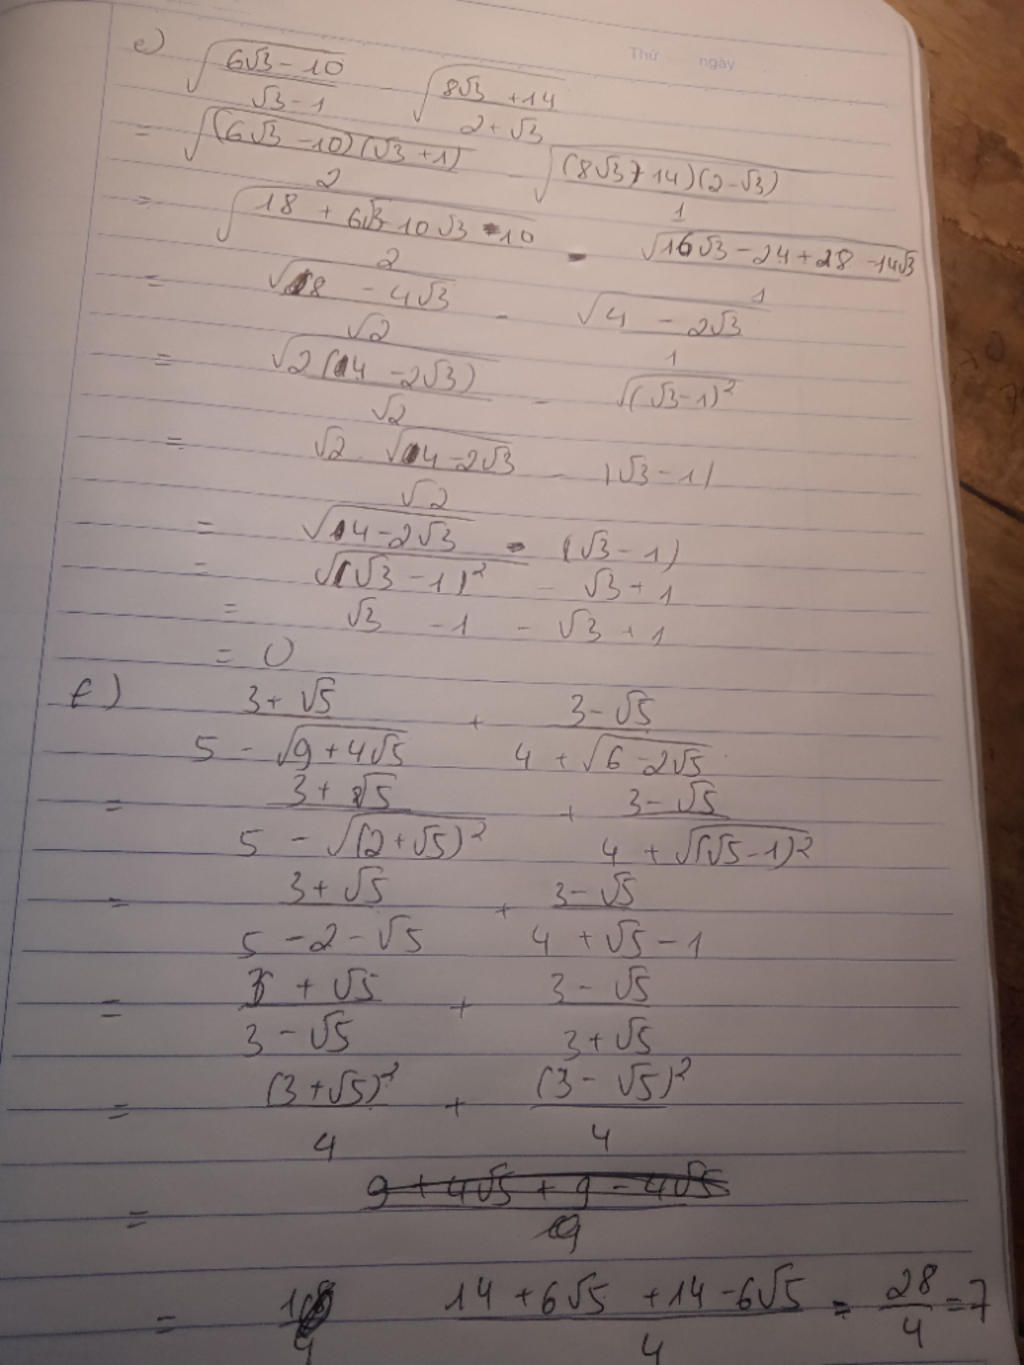 Thứ ngày
e) √((6√3 - 10)/(√3 - 1)) √((8√3 + 14)/(2 + √3))
= √((6√3 - 10)(√3 + 1)/2) - √((8√3 + 14)(2 - √3)/1)
= √((18 + 6√3 - 10√3 - 10)/2) - √(16√3 - 24 + 28 - 14√3)/1
= √(8 - 4√3)/√2 - √(4 - 2√3)/1
= √(2(4 - 2√3))/√2 - √((√3 - 1)²)
= √2 . √(4 - 2√3)/√2 - |√3 - 1|
= √(4 - 2√3) - (√3 - 1)
= √((√3 - 1)²) - √3 + 1
= √3 - 1 - √3 + 1
= 0
f) (3 + √5)/(5 - √(9 + 4√5)) + (3 - √5)/(4 + √(6 - 2√5))
= (3 + √5)/(5 - √((2 + √5)²)) + (3 - √5)/(4 + √((√5 - 1)²))
= (3 + √5)/(5 - 2 - √5) + (3 - √5)/(4 + √5 - 1)
= (3 + √5)/(3 - √5) + (3 - √5)/(3 + √5)
= (3 + √5)²/4 + (3 - √5)²/4
= (9 + 4√5 + 9 - 4√5)/9
= (14 + 6√5 + 14 - 6√5)/4 = 28/4 = 7